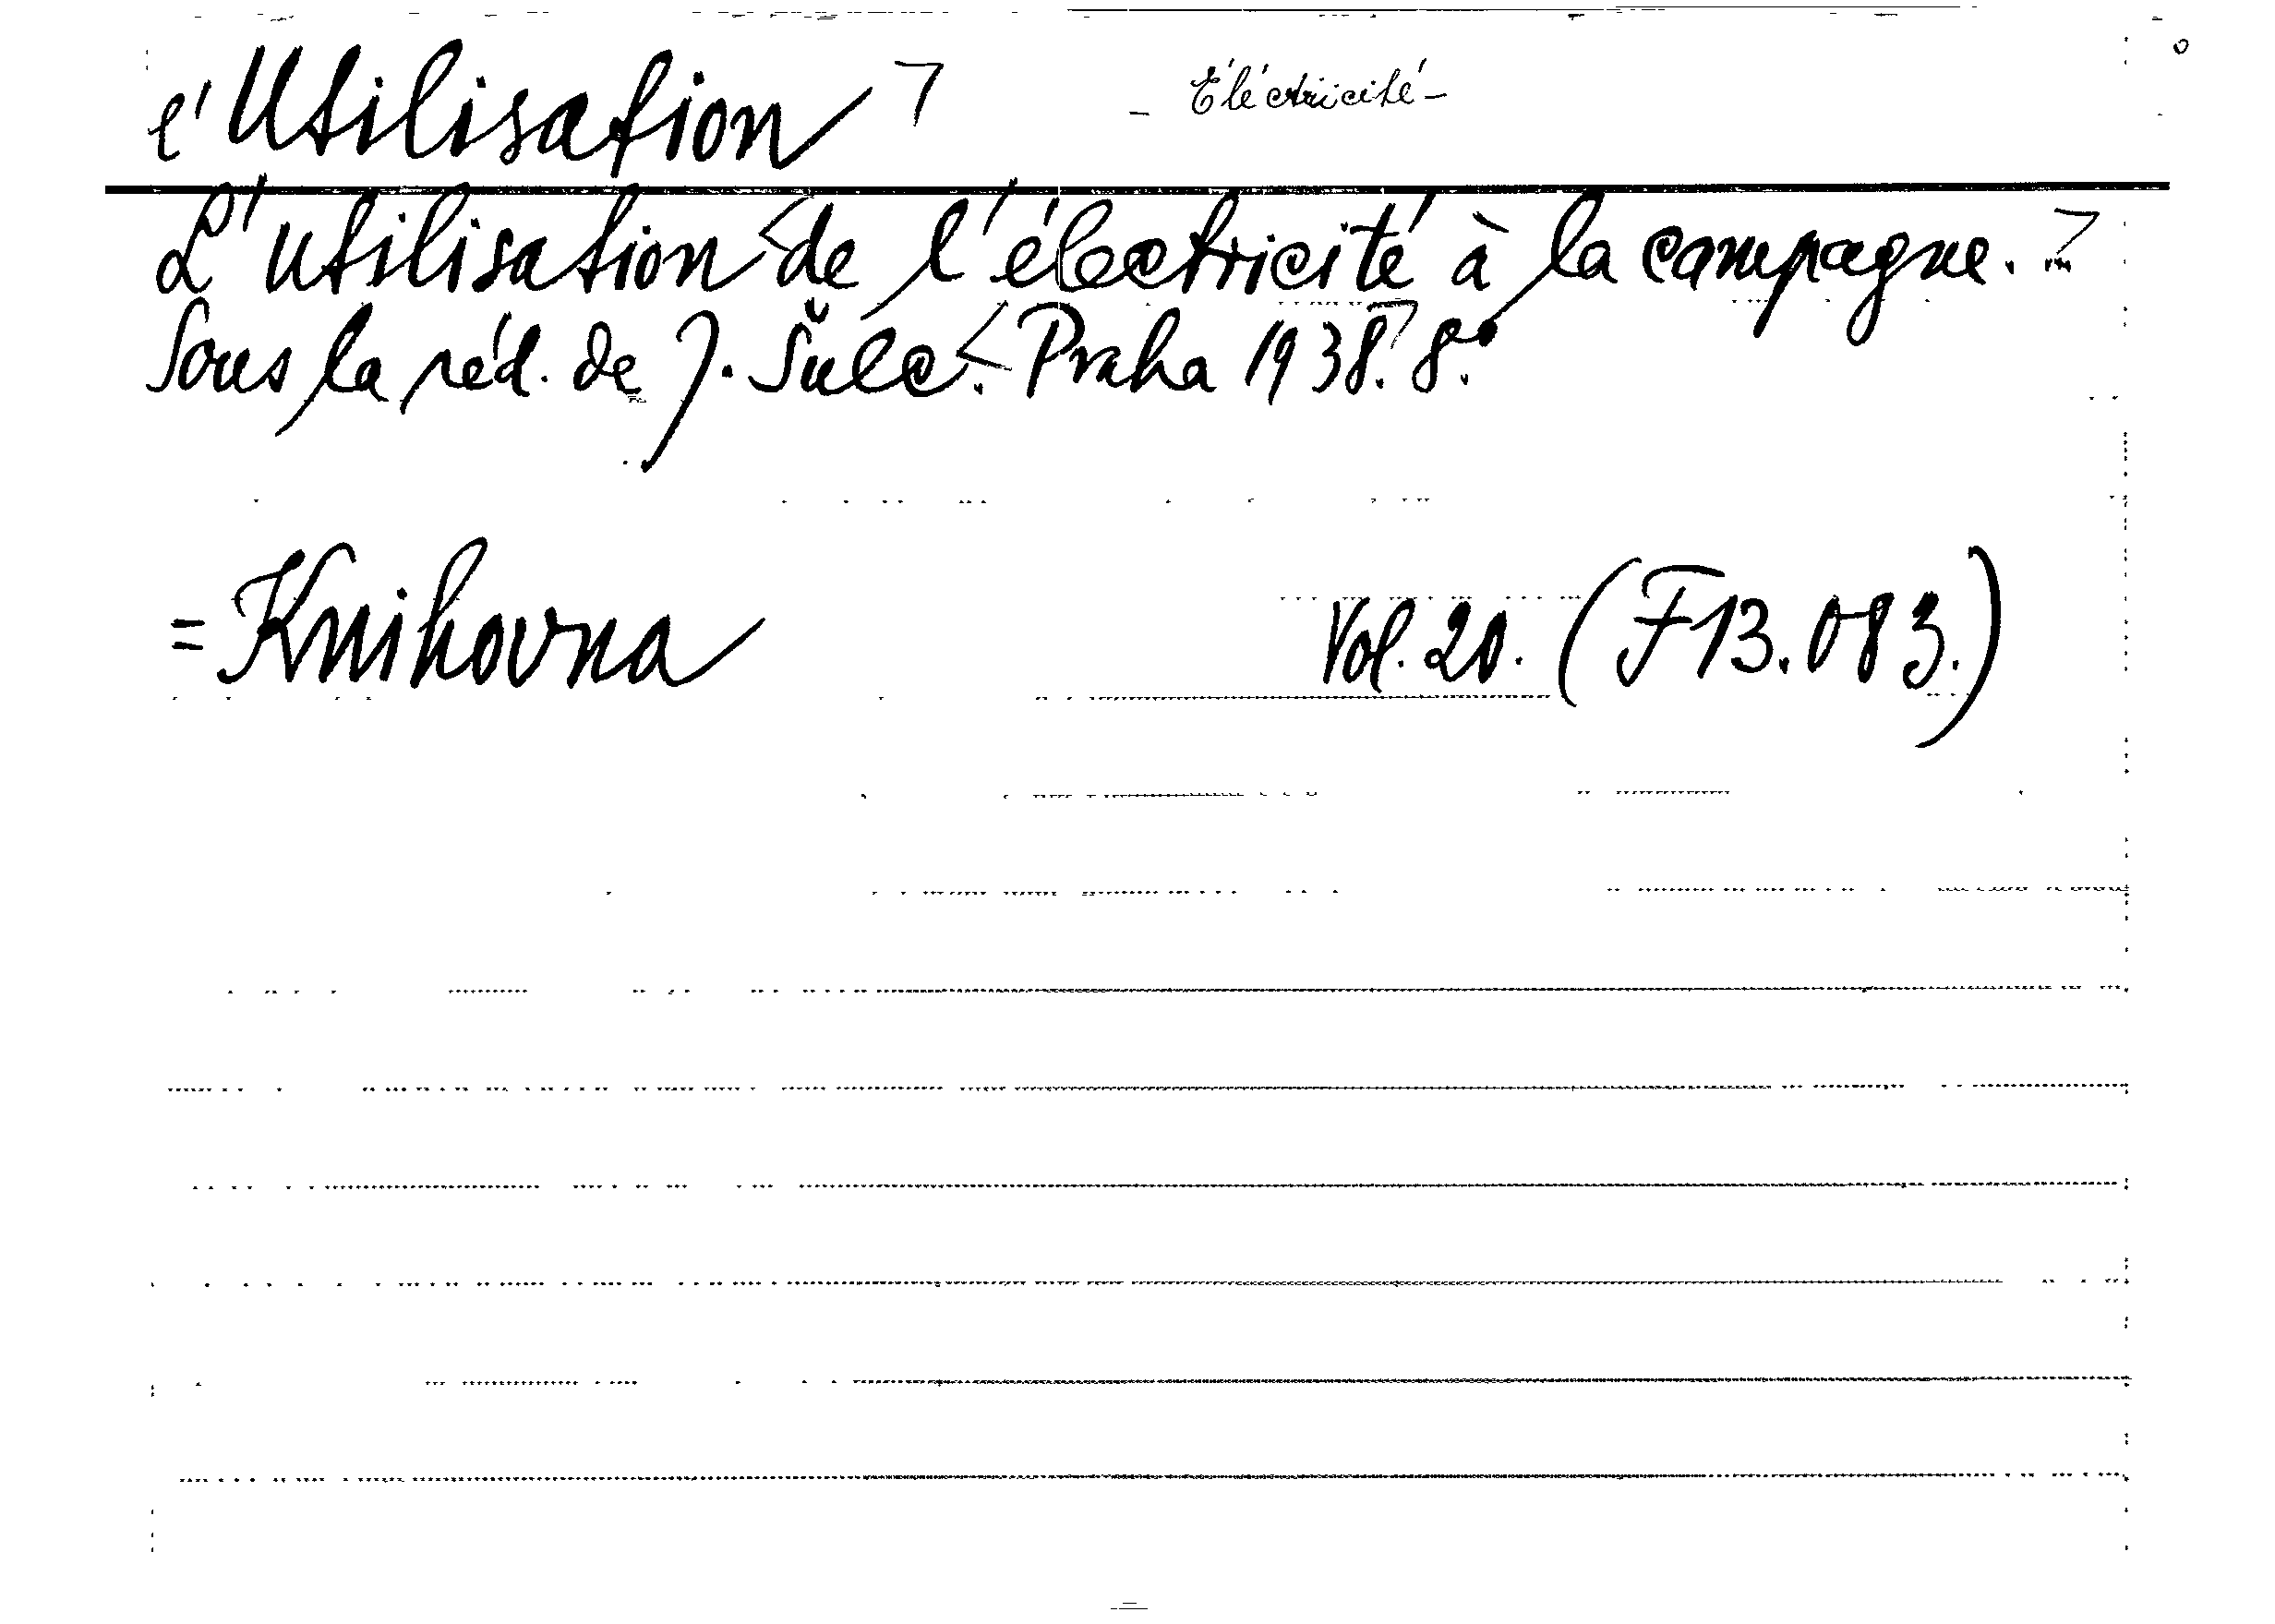 l'Utilisation - Électricité -
L'utilisation de l'électricité à la campagne.
Sous la réd. de J. Šulc. Praha 1938. 8°.
= Knihovna Vol. 20. (F13.083.)